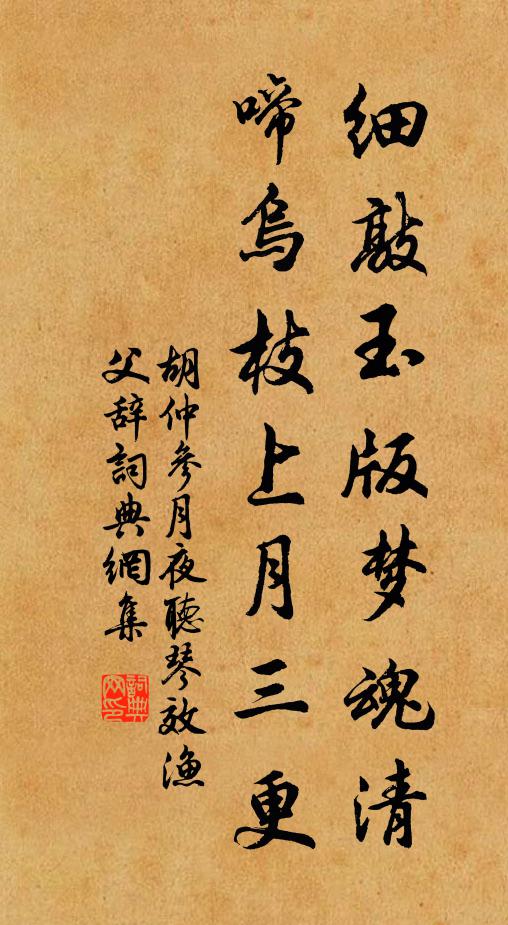 细敲玉版梦魂清
啼乌枝上月三更
胡仲参月夜聽琴效渔
父辞詞典網集
詞典網印